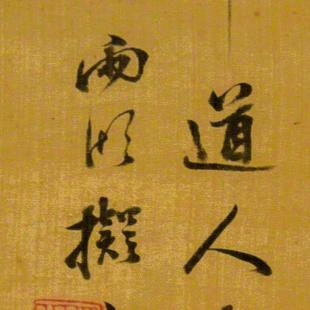 道人
雨順擬